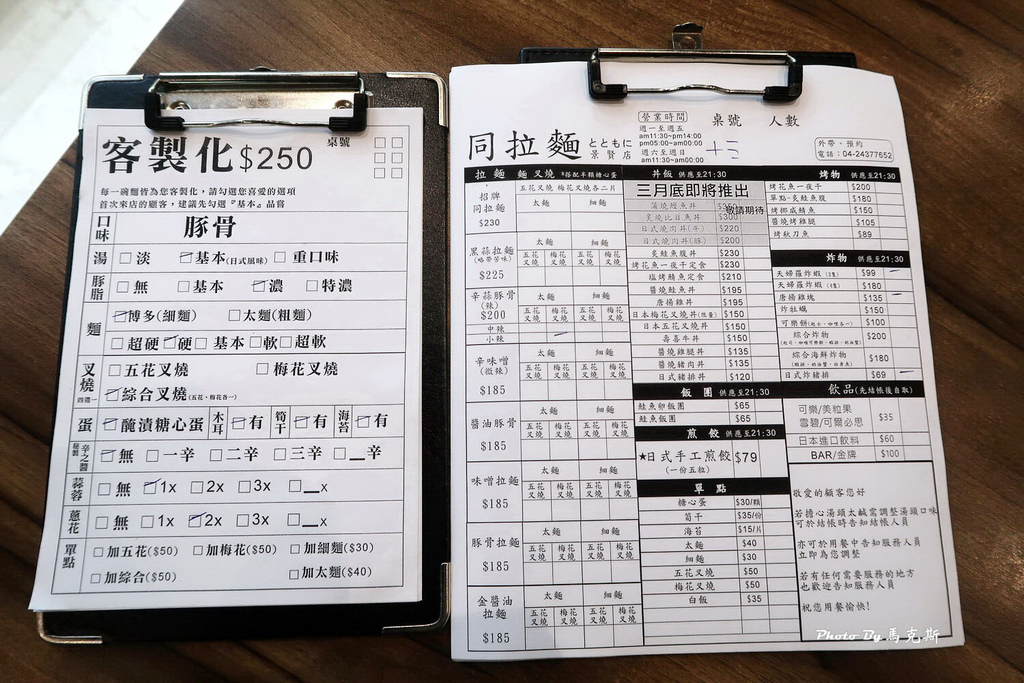 客製化$250
桌號
每一碗麵皆為您客製化,請勾選您喜愛的選項
首次來店的顧客,建議先勾選『基本』品嘗
口味 豚骨
湯 淡 基本(日式風味) 重口味
豚脂 無 基本 濃 特濃
麵 博多(細麵) 太麵(粗麵)
超硬 硬 基本 軟 超軟
叉燒 四選一 五花叉燒 梅花叉燒
綜合叉燒(五花、梅花各一)
蛋 醃漬糖心蛋 木耳 有 筍干 有 海苔 有
秘製辛之醬 無 一辛 二辛 三辛 __辛
蒜蓉 無 1x 2x 3x __x
蔥花 無 1x 2x 3x __x
單點 加五花($50) 加梅花($50) 加細麵($30)
加綜合($50) 加太麵($40)
同拉麵 とともに
景賢店
營業時間
週一至週五
am11:30~pm14:00
pm05:00~am00:00
週六至週日
am11:30~am00:00
桌號 人數
外帶。預約
電話:04-24377652
拉麵 麵 叉燒 *搭配半顆糖心蛋
招牌同拉麵 $230 五花叉燒 梅花叉燒各二片
太麵 細麵
黑蒜拉麵 (略帶苦味) $225
太麵 細麵
五花叉燒 梅花叉燒 五花叉燒 梅花叉燒
辛蒜豚骨 (辣) $200
太麵 細麵
五花叉燒 梅花叉燒 五花叉燒 梅花叉燒
中辣
小辣
辛味噌 (微辣) $185
太麵 細麵
五花叉燒 梅花叉燒 五花叉燒 梅花叉燒
醬油豚骨 $185
太麵 細麵
五花叉燒 梅花叉燒 五花叉燒 梅花叉燒
味噌拉麵 $185
太麵 細麵
五花叉燒 梅花叉燒 五花叉燒 梅花叉燒
豚骨拉麵 $185
太麵 細麵
五花叉燒 梅花叉燒 五花叉燒 梅花叉燒
金醬油拉麵 $185
太麵 細麵
五花叉燒 梅花叉燒 五花叉燒 梅花叉燒
丼飯 供應至21:30
三月底即將推出
敬請期待
蒲燒鰻魚丼 $350
炙燒比目魚丼 $300
日式燒肉丼(牛) $220
日式燒肉丼(豚) $200
炙鮭魚腹丼 $230
烤花魚一夜干定食 $230
塩烤鯖魚定食 $210
醬燒鮭魚丼 $195
唐揚雞丼 $195
日本梅花叉燒丼(限量) $150
日本五花叉燒丼 $150
壽喜牛丼 $150
醬燒雞腿丼 $135
醬燒豬肉丼 $135
日式豬排丼 $120
飯團 供應至21:30
鮭魚卵飯團 $65
鮭魚飯團 $65
煎餃 供應至21:30
★日式手工煎餃 $79
(一份五粒)
單點
糖心蛋 $30/顆
筍干 $35/份
海苔 $15/片
太麵 $40
細麵 $30
五花叉燒 $50
梅花叉燒 $50
白飯 $35
烤物 供應至21:30
烤花魚一夜干 $200
單點-炙鮭魚腹 $180
烤挪威鯖魚 $150
醬燒烤雞腿 $105
烤秋刀魚 $89
炸物 供應至21:30
天婦羅炸蝦 (2隻) $99
天婦羅炸蝦 (4隻) $180
唐揚雞塊 $135
炸牡蠣 $150
可樂餅(起士、咖哩各一) $100
綜合炸物 $200
綜合海鮮炸物 $180
日式炸豬排 $69
飲品(先結帳後自取)
可樂/美粒果
雪碧/可爾必思 $35
日本進口飲料 $60
BAR/金牌 $100
敬愛的顧客您好
若擔心湯頭太鹹需調整湯頭口味
可於結帳時告知結帳人員
亦可於用餐中告知服務人員
立即為您調整
若有任何需要服務的地方
也歡迎告知服務人員
祝您用餐愉快!
Photo By 馬克斯